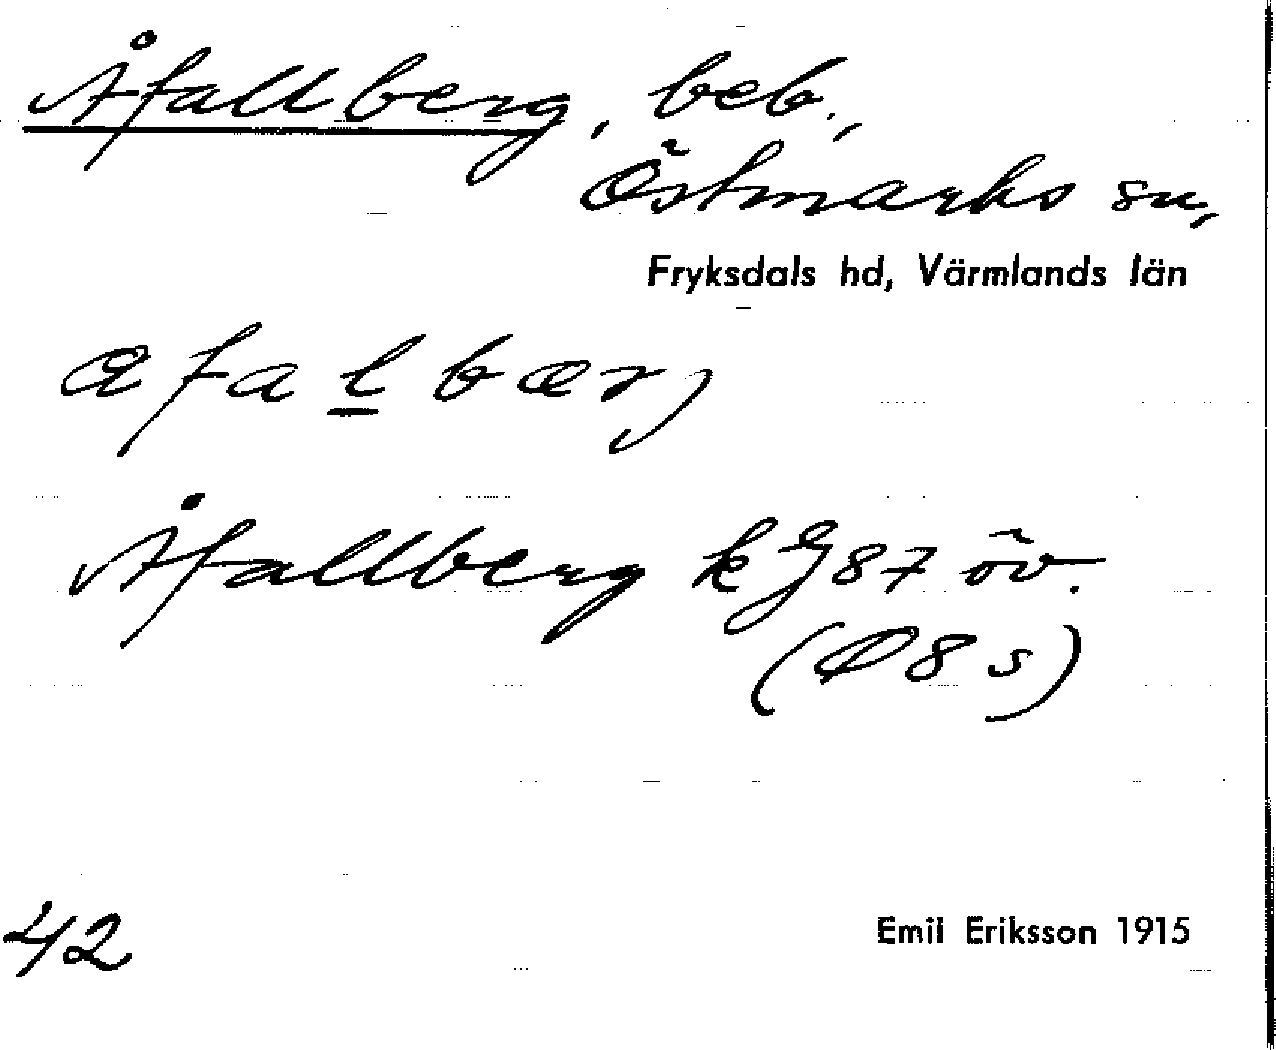 Åfallberg, beb.,
Östmarks sn,
Fryksdals hd, Värmlands län
afalbærj
Åfallberg kJ87 öv.
(Ø8s)
42
Emil Eriksson 1915